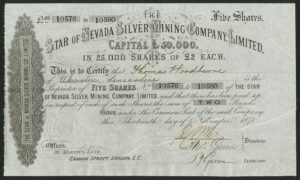 Nos 10576 to 10580. THE Five Shares.
STAR OF NEVADA SILVER MINING COMPANY, LIMITED.
CAPITAL £50,000.
IN 25,000 SHARES OF £2 EACH.
This is to Certify that Thomas Woodburne
is the
Proprietor of FIVE SHARES Nos 10576 to 10580 of THE STAR
OF NEVADA SILVER MINING COMPANY LIMITED and that there has been paid up
in respect of each of such Shares the sum of TWO Pounds
GIVEN under the Common Seal of the said Company
this Thirteenth day of 1871
Directors.
Offices,
St MARTIN'S LANE,
CANNON STREET, LONDON, E.C.